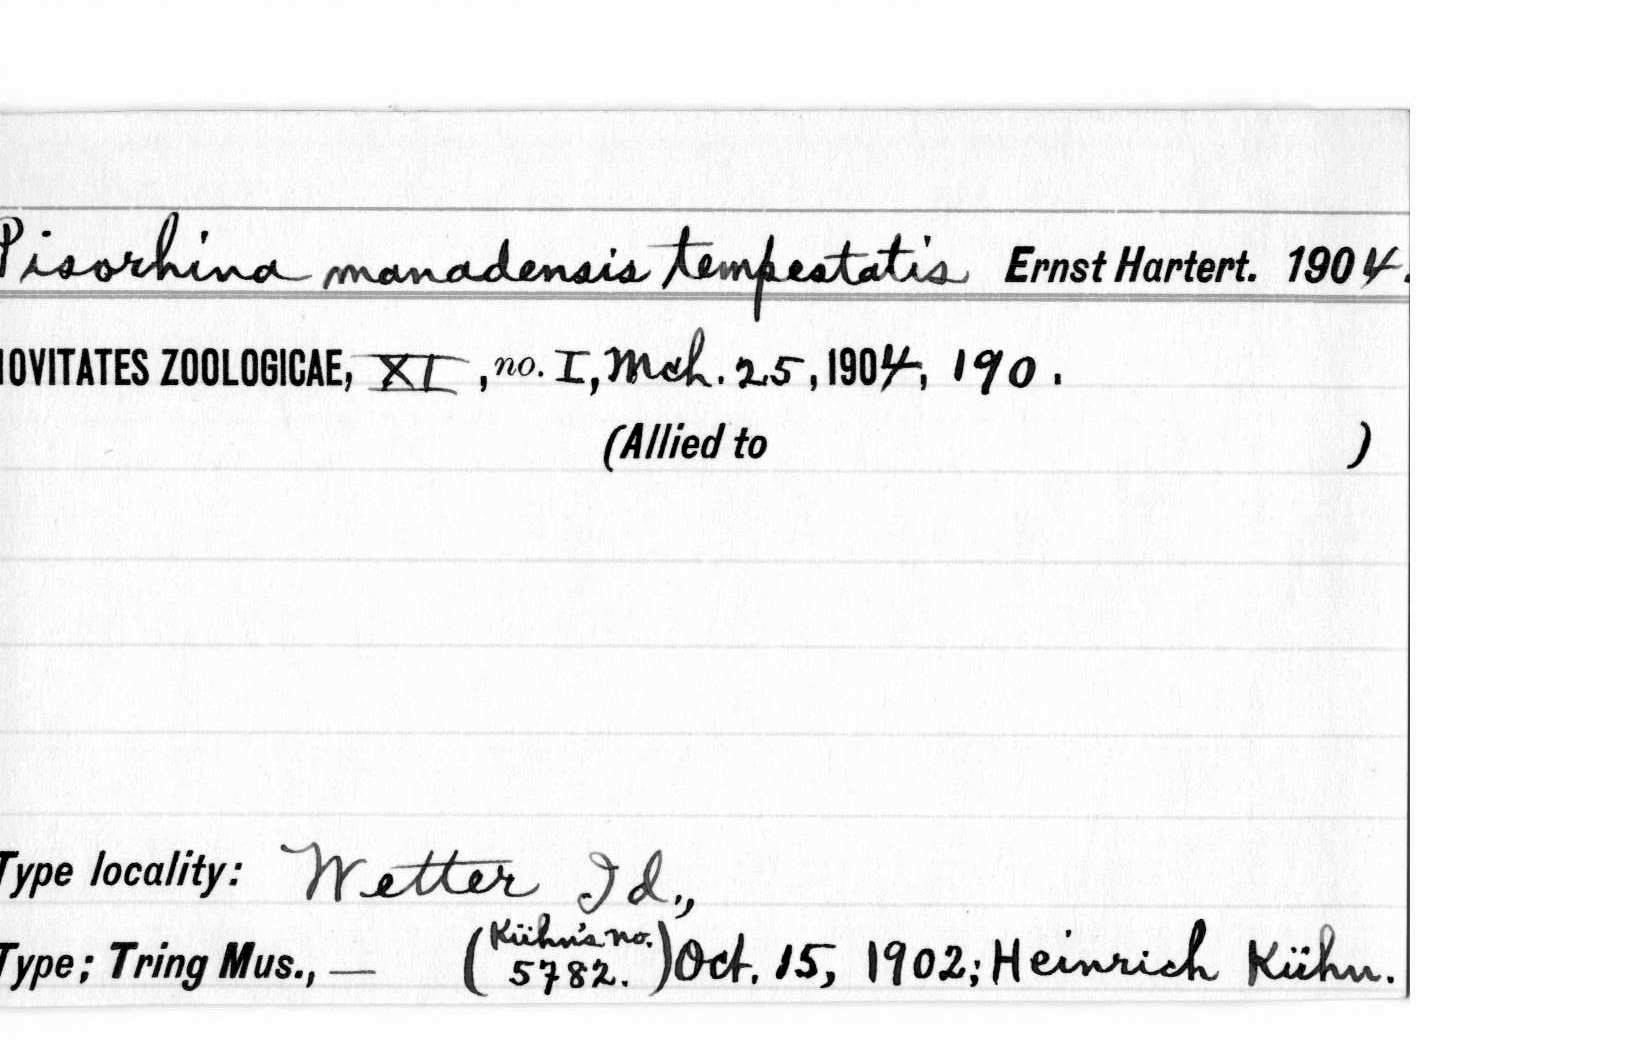 Pisorhina manadensis tempestatis Ernst Hartert. 1904.
NOVITATES ZOOLOGICAE, XI, no. I, Mch. 25, 1904, 190.
(Allied to )
Type locality: Wetter Id.,
Type; Tring Mus., — (Kühn's no. 5782.) Oct. 15, 1902; Heinrich Kühn.